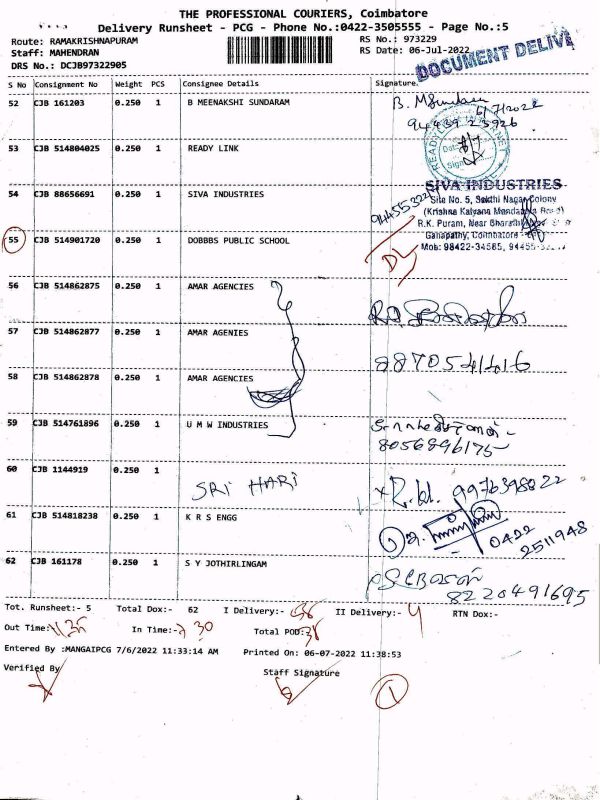 THE PROFESSIONAL COURIERS, Coimbatore
Delivery Runsheet - PCG - Phone No.:0422-3505555 - Page No.:5
Route: RAMAKRISHNAPURAM
RS No.: 973229
Staff: MAHENDRAN
RS Date: 06-Jul-2022
DRS No.: DCJB97322905
DOCUMENT DELIVE
S No Consignment No Weight PCS Consignee Details Signature.
52 CJB 161203 0.250 1 B MEENAKSHI SUNDARAM
6/7/2022
53 CJB 514804025 0.250 1 READY LINK
54 CJB 88656691 0.250 1 SIVA INDUSTRIES
SIVA INDUSTRIES
Site No. 5, Sakthi Nagar Colony
(Krishna Kalyana Mandapam Road)
R.K. Puram, Near
Ganapathy, Coimbatore
Mob: 98422-34585, 94455-
55 CJB 514901720 0.250 1 DOBBBS PUBLIC SCHOOL
DL
56 CJB 514862875 0.250 1 AMAR AGENCIES
57 CJB 514862877 0.250 1 AMAR AGENIES
8870541416
58 CJB 514862878 0.250 1 AMAR AGENCIES
59 CJB 514761896 0.250 1 U M W INDUSTRIES
8056896175
60 CJB 1144919 0.250 1
SRI HARI
9976398822
61 CJB 514818238 0.250 1 K R S ENGG
0422
2511948
62 CJB 161178 0.250 1 S Y JOTHIRLINGAM
8220491695
Tot. Runsheet:- 5 Total Dox:- 62 I Delivery:- II Delivery:- 4 RTN Dox:-
Out Time: In Time:- 30 Total POD:
Entered By :MANGAIPCG 7/6/2022 11:33:14 AM Printed On: 06-07-2022 11:38:53
Verified By Staff Signature
1